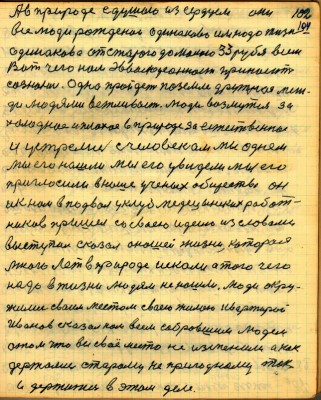 102
А в природе с душою из сердцем они 104
все люди рождены одинаково им надо жизнь
одинакова от старого до малого 33 рубля всем
Вот чего нам Эволюционность принесет
сознание. Одно пройдет по земле дружная меж-
ду людьми вспыхивает. Люди возьмутся за
холодное и плохое в природе за естественное
и устремые с человеком мы одним
мы его нашли мы его увидели мы его
пригласили в наше ученых общество он
и к нам в подвал у клуб медецынских работ-
ников пришел со своею идеею из словами
выступал сказал о нашей жизни, которая
много лет в природе искали а того чего
надо в жизни людям не нашли. Люди окру-
жили своим местом своею жилою квартирой
Иванов сказал нам всем собравшим людям
о том што вы своё место не изменили а как
держались старому, не пригодному так
и держитесь в этом деле.